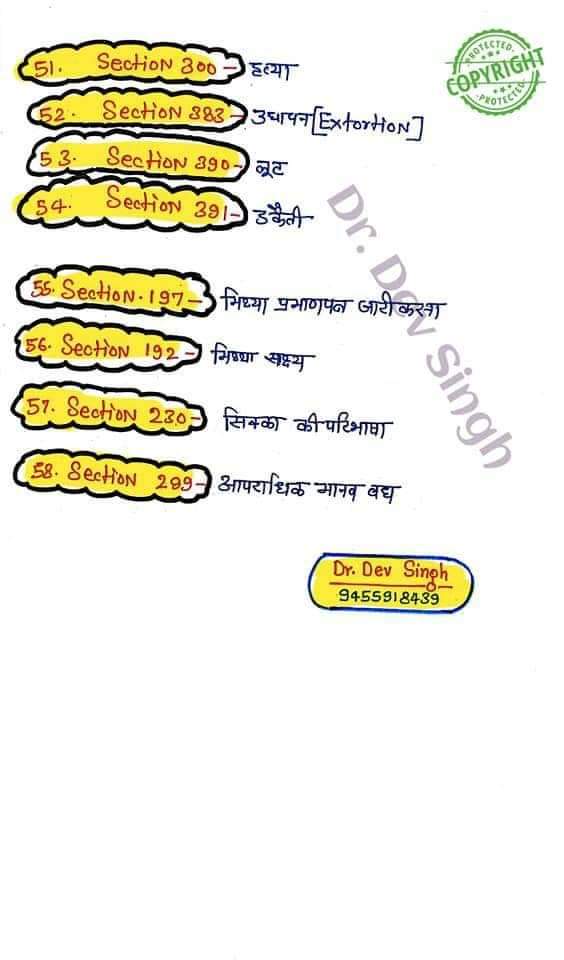 PROTECTED
COPYRIGHT
PROTECTED
51. Section 300 - हत्या
52. Section 383 - उद्यापन [Extortion]
53. Section 390 - लूट
54. Section 391 - डकैती
Dr. Dev Singh
55. Section. 197 - मिथ्या प्रमाणपत्र जारी करना
56. Section 192 - मिथ्या साक्ष्य
57. Section 230 - सिक्का की परिभाषा
58. Section 299 - आपराधिक मानव वध
Dr. Dev Singh
9455918439